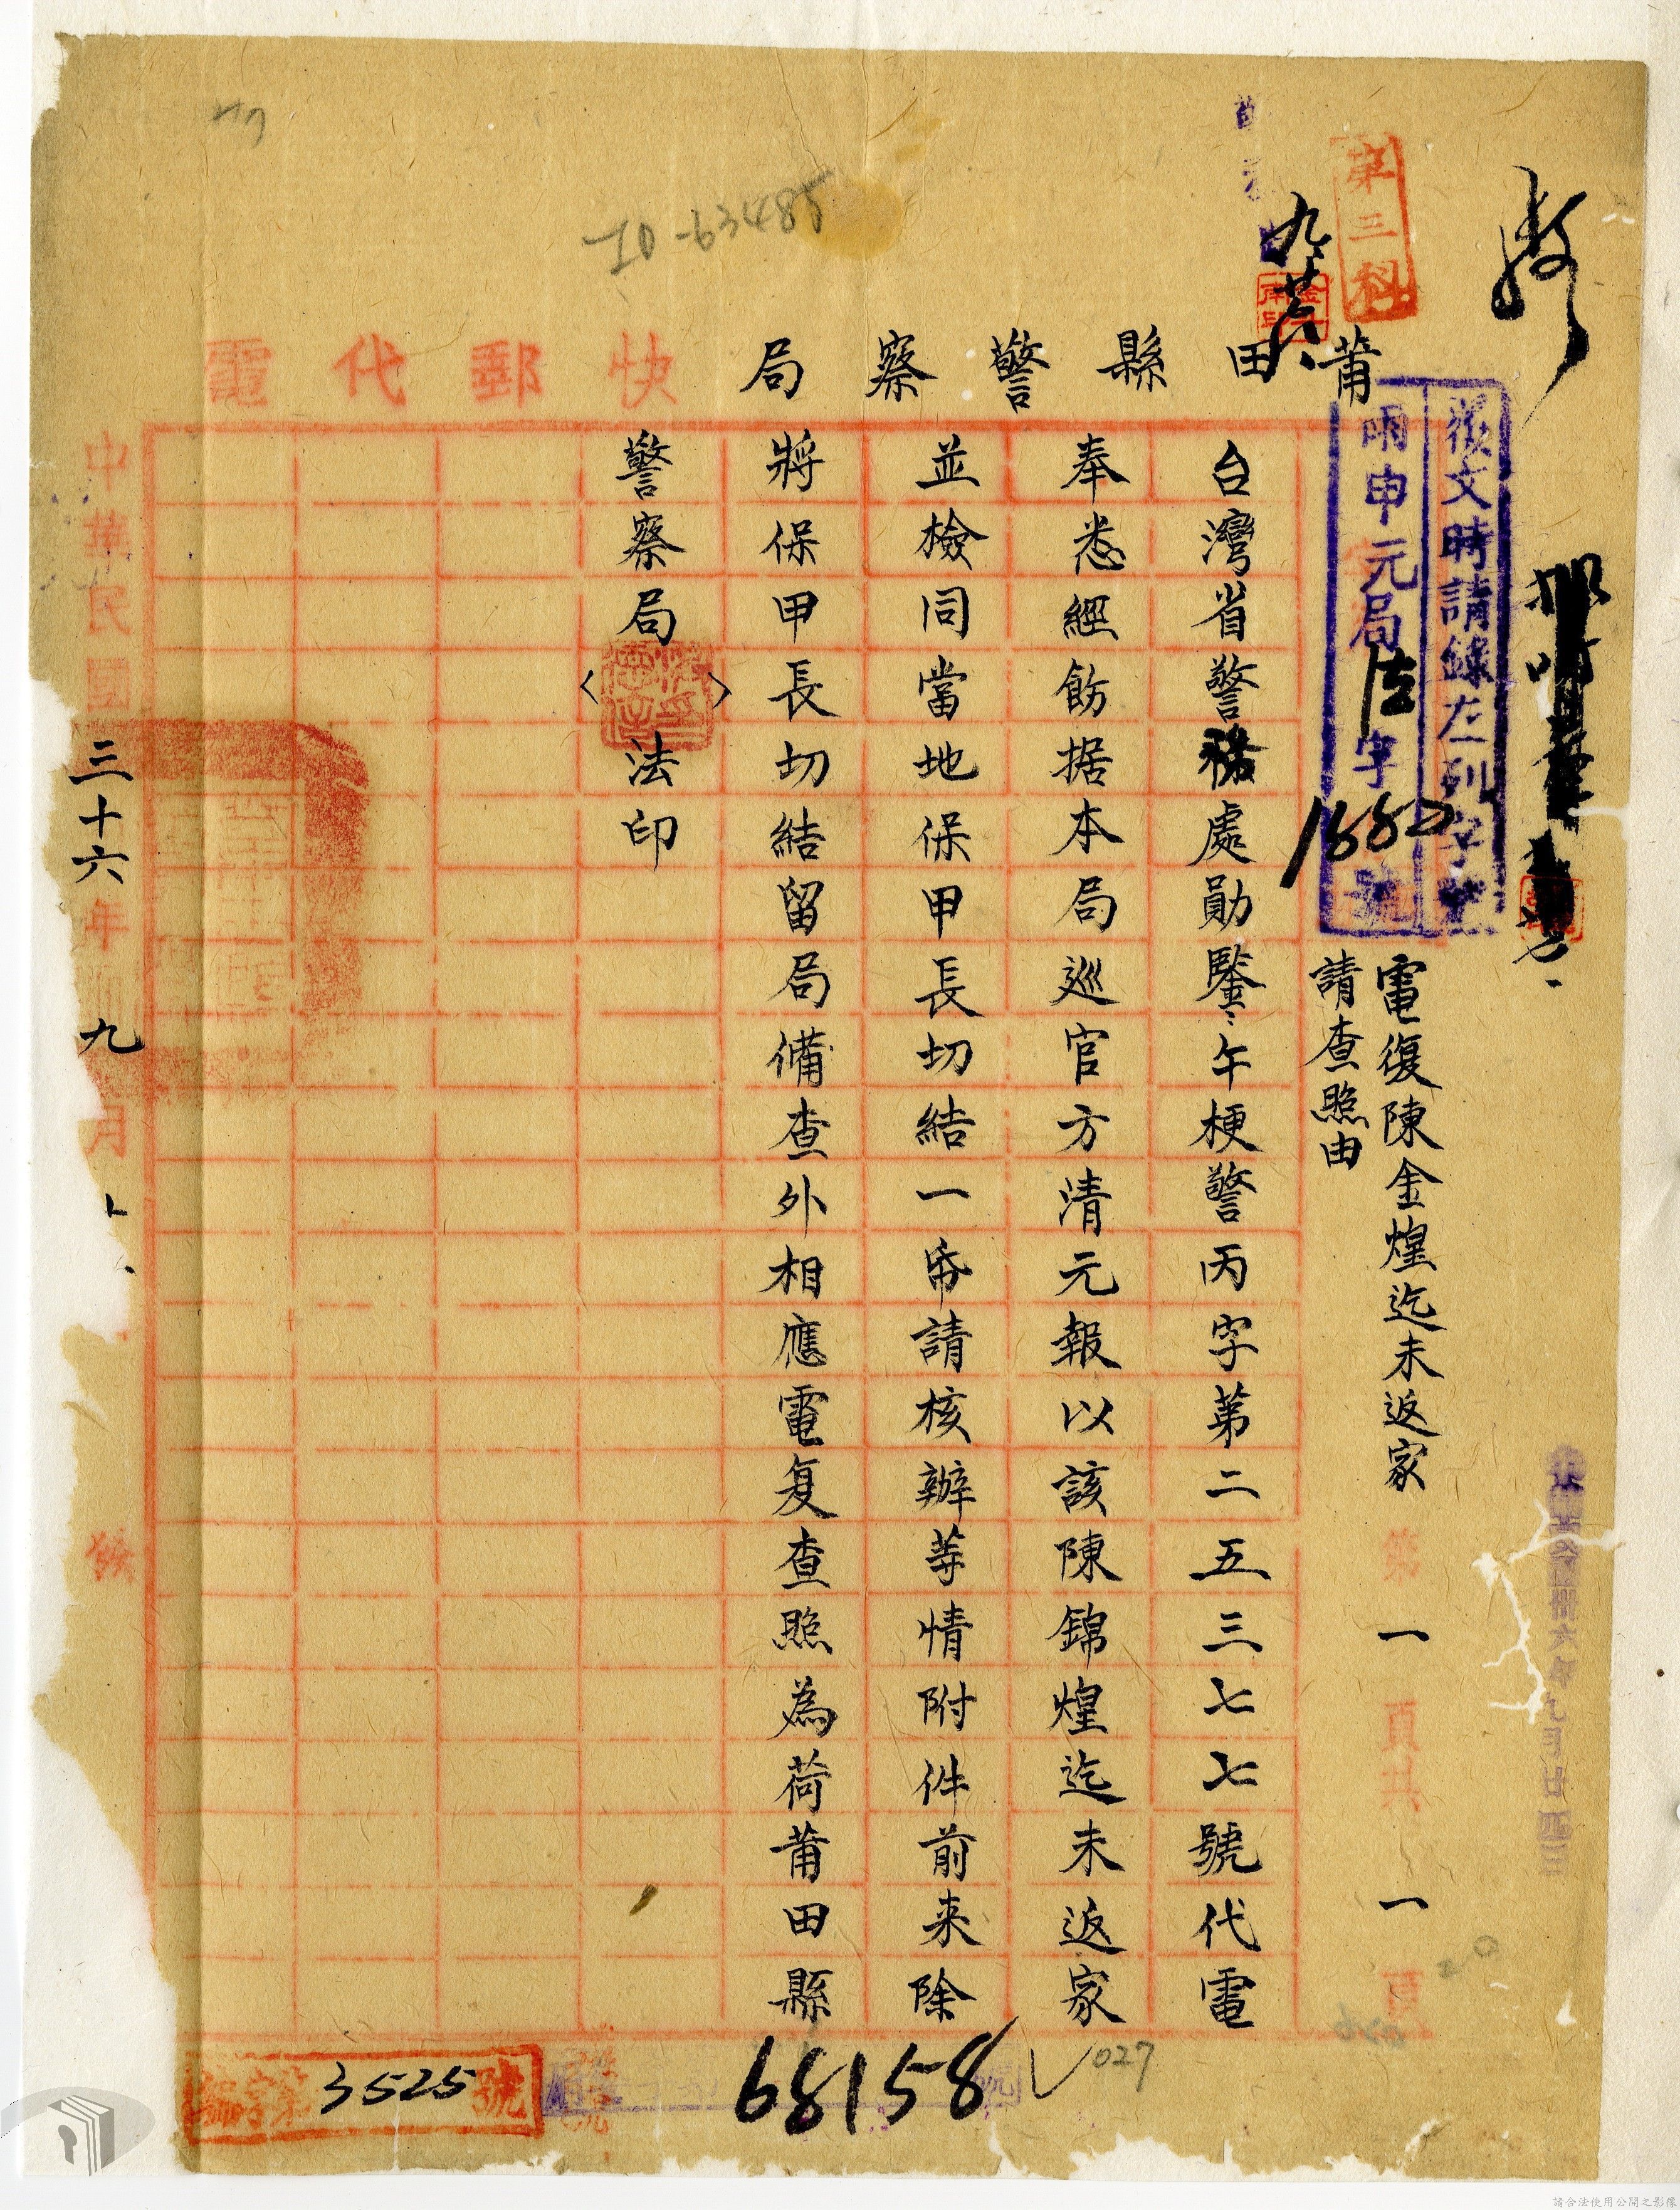 第三科
九廿六
莆田縣警察局快郵代電
復文時請錄左列字號
雨申元局法字1882號
電復陳金煌迄未返家
請查照由
第一頁共一頁
台灣省警務處勛鑒午梗警丙字第二五三七七號代電
奉悉經飭据本局巡官方清元報以該陳錦煌迄未返家
並檢同當地保甲長切結一帋請核辦等情附件前来除
將保甲長切結留局備查外相應電复查照為荷莆田縣
警察局法印
中華民國三十六年九月
發
字第3525號
68158
027
ID-63485
請合法使用公開之影像